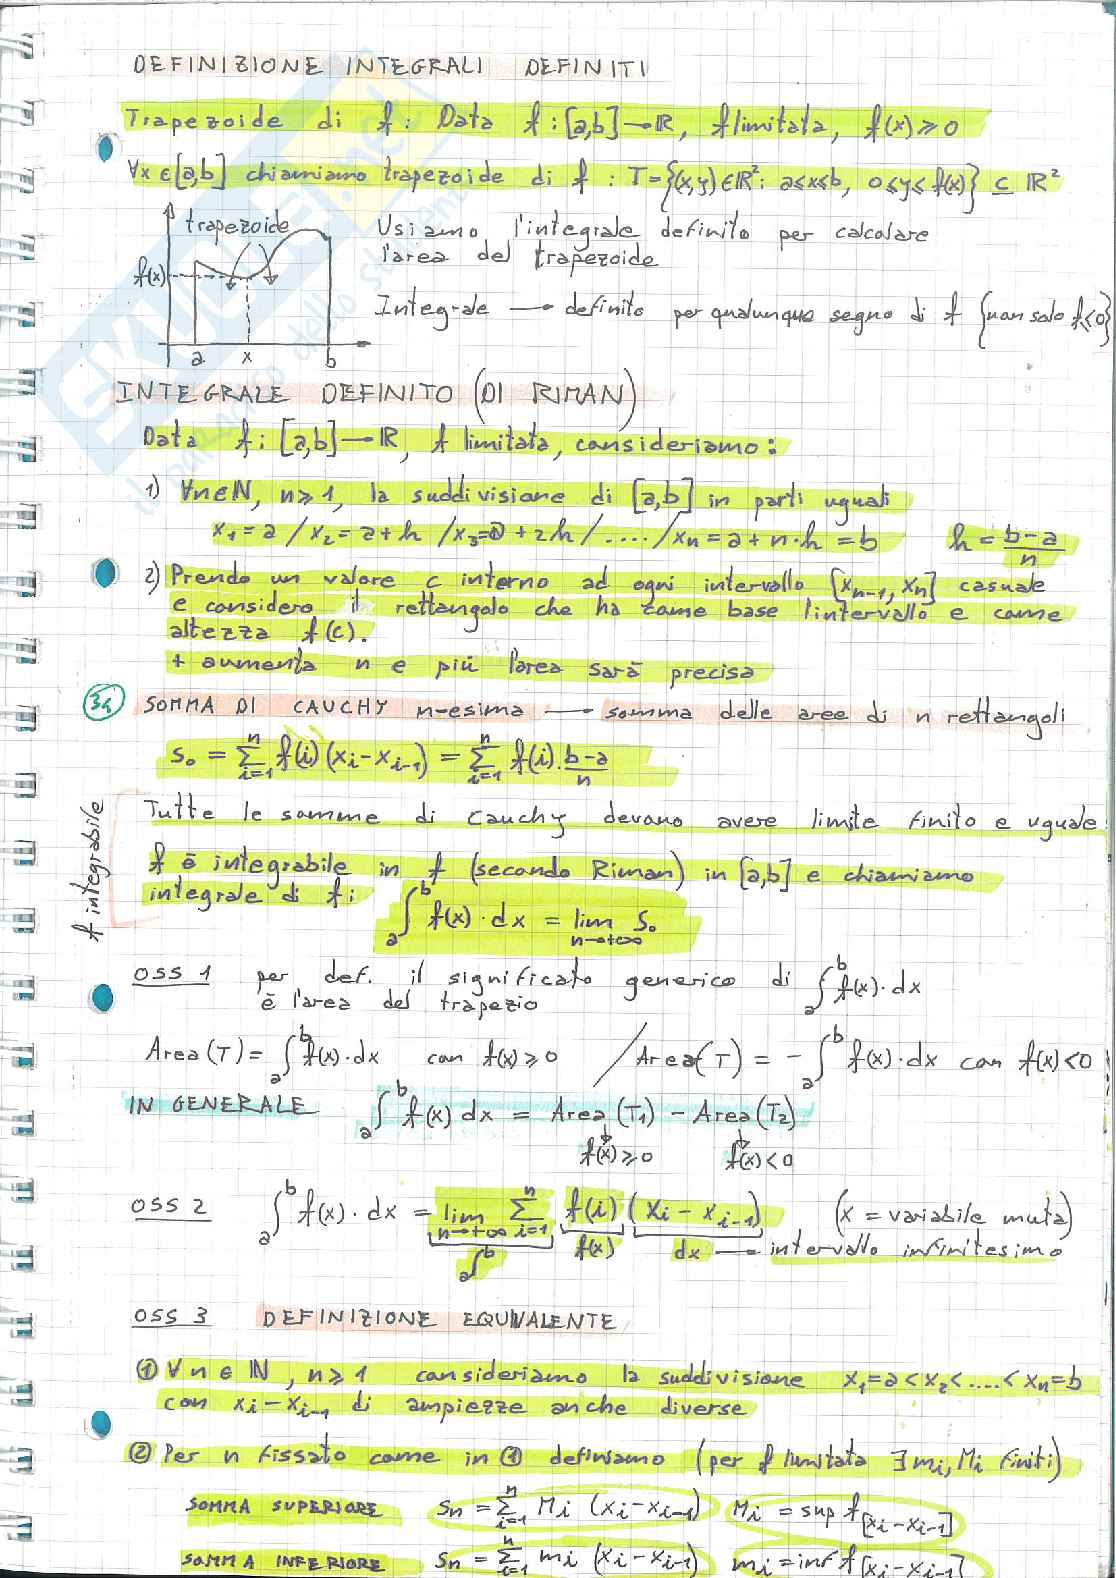 DEFINIZIONE INTEGRALI DEFINITI
Trapezoide di f: Data f: [a,b] → ℝ, f limitata, f(x) ≥ 0
∀x ∈ [a,b] chiamiamo trapezoide di f : T = {(x,y) ∈ ℝ²: a≤x≤b, 0≤y≤f(x)} ⊆ ℝ²
trapezoide
f(x)
a x b
Usiamo l'integrale definito per calcolare
l'area del trapezoide
Integrale → definito per qualunque segno di f {non solo f<0}
INTEGRALE DEFINITO (DI RIMAN)
Data f: [a,b] → ℝ, f limitata, consideriamo:
1) ∀n∈ℕ, n≥1, la suddivisione di [a,b] in parti uguali
x₁ = a / x₂ = a+h / x₃ = a+2h / .... / xₙ = a+n·h = b h = (b-a)/n
2) Prendo un valore c interno ad ogni intervallo [xₙ₋₁, xₙ] casuale
e considero il rettangolo che ha come base l'intervallo e come
altezza f(c).
+ aumenta n e più l'area sarà precisa
34 SOMMA DI CAUCHY n-esima → somma delle aree di n rettangoli
S₀ = ∑ⁿᵢ₌₁ f(i) (xᵢ-xᵢ₋₁) = ∑ⁿᵢ₌₁ f(i)·(b-a)/n
f integrabile
Tutte le somme di Cauchy devono avere limite finito e uguale:
f è integrabile in f (secondo Riman) in [a,b] e chiamiamo
integrale di f:
∫ₐᵇ f(x)·dx = lim n→+∞ S₀
OSS 1 per def. il significato generico di ∫ₐᵇ f(x)·dx
è l'area del trapezio
Area(T) = ∫ₐᵇ f(x)·dx con f(x) ≥ 0 / Area(T) = -∫ₐᵇ f(x)·dx con f(x) < 0
IN GENERALE ∫ₐᵇ f(x) dx = Area(T₁) - Area(T₂)
f(x) ≥ 0 f(x) < 0
OSS 2 ∫ₐᵇ f(x)·dx = lim n→+∞ ∑ⁿᵢ₌₁ f(i) (xᵢ - xᵢ₋₁) (x = variabile muta)
∫ₐᵇ f(x) dx → intervallo infinitesimo
OSS 3 DEFINIZIONE EQUIVALENTE
① ∀n∈ℕ, n≥1 consideriamo la suddivisione x₁=a<x₂<....<xₙ=b
con xᵢ-xᵢ₋₁ di ampiezze anche diverse
② Per n fissato come in ① definiamo (per f limitata ∃ mᵢ, Mᵢ finiti)
SOMMA SUPERIORE Sₙ = ∑ⁿᵢ₌₁ Mᵢ (xᵢ-xᵢ₋₁) Mᵢ = sup f [xᵢ-xᵢ₋₁]
SOMMA INFERIORE sₙ = ∑ⁿᵢ₌₁ mᵢ (xᵢ-xᵢ₋₁) mᵢ = inf f [xᵢ-xᵢ₋₁]